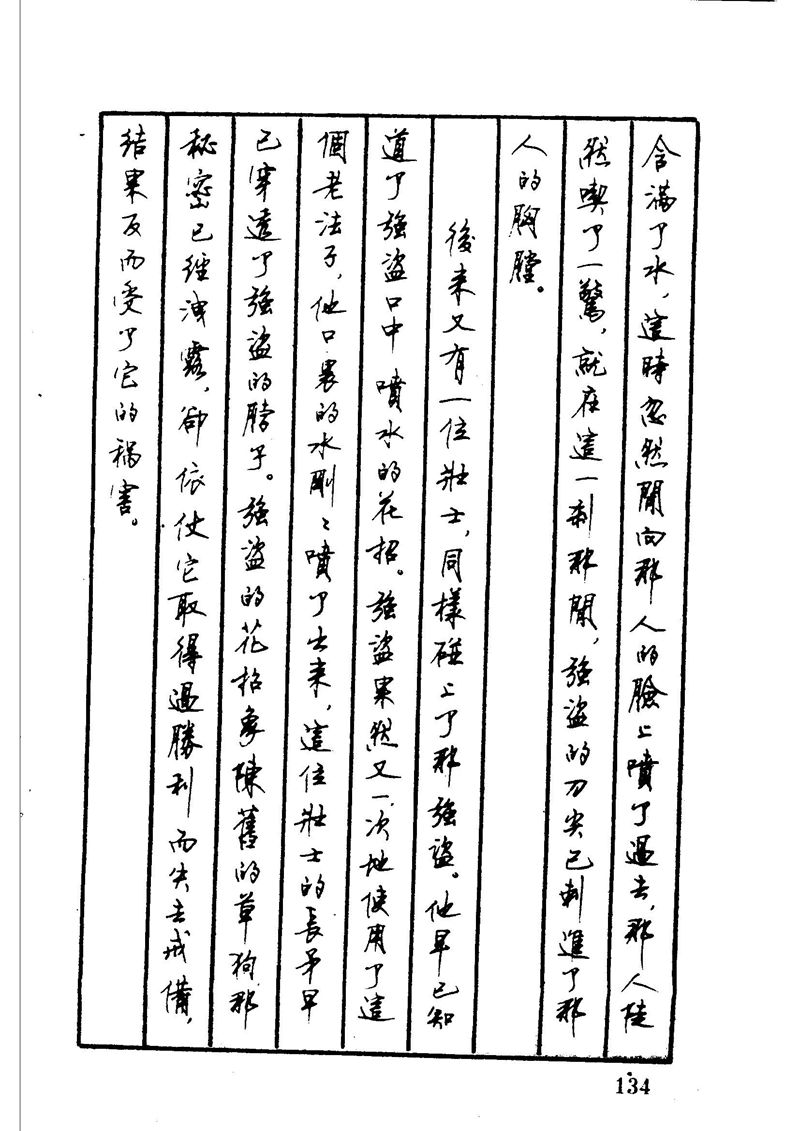 含滿了水，這時忽然間向那人的臉上噴了過去，那人陡
然喫了一驚，就在這一剎那間，強盜的刀尖已刺進了那
人的胸膛。
後来又有一位壯士，同樣碰上了那強盜。他早已知
道了強盜口中噴水的花招。強盜果然又一次地使用了這
個老法子，他口裏的水剛〻噴了出来，這位壯士的長矛早
已穿透了強盜的脖子。強盜的花招象陳舊的草狗那
秘密已經洩露，卻依仗它取得過勝利而失去戒備，
结果反而受了它的禍害。
134